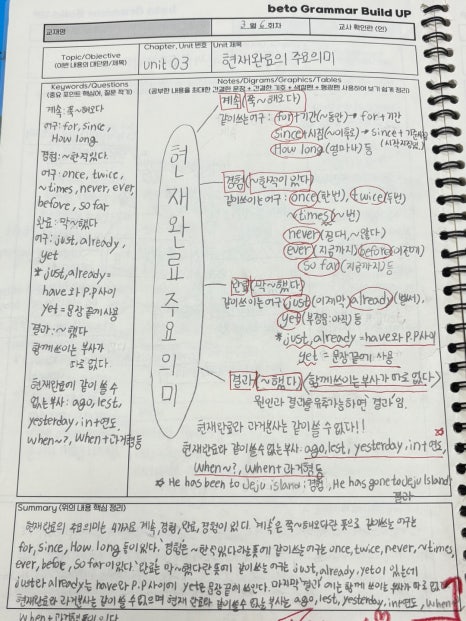 beto Grammar Build UP
교재명
3 월 6 회차
교사 확인란 (인)
Topic/Objective
(이번 내용의 대단원/제목)
Chapter, Unit 번호
Unit 03
Unit 제목
현재완료의 주요의미
Keywords/Questions
(중요 포인트 핵심어, 질문 적기)
계속: 쭉~해오다
어구: for, since,
How long
경험: ~한적있다
어구: once, twice,
~times, never, ever,
before, so far
완료: 막~했다
어구: just, already,
yet
* just, already =
have와 P.P 사이
yet = 문장 끝에 사용
결과: ~했다
함께쓰이는 부사가
따로 없다
현재완료와 같이 쓸 수
없는 부사: ago, lest,
yesterday, in+연도,
when~?, when+과거행동
Notes/Digrams/Graphics/Tables
(공부한 내용을 최대한 간결한 문장 + 간결한 기호 + 색깔펜 + 형광펜 사용하여 보기 쉽게 정리)
현재완료주요의미
계속(쭉~해오다)
같이쓰는어구: for+기간(~동안) → for+기간
since+시점(~이후로) → since+
How long (얼마나) 등
경험(~한적이 있다)
같이쓰이는 어구: once(한번), twice(두번)
~times(~번)
never(절대, ~않다)
ever(지금까지) before(이전에)
so far(지금까지) 등
완료(막~했다)
같이쓰이는 어구 just(이제막) already(벌써),
yet(부정문:아직) 등
* just, already = have와 P.P 사이
yet = 문장 끝에 사용
결과(~했다) (함께쓰이는 부사가 따로 없다)
원인과 결과를 유추가능하면 '결과'임.
현재완료와 과거부사는 같이쓸 수없다!!
현재완료와 같이쓸수없는부사: ago, lest, yesterday, in+연도,
When~?, When+과거행동
☆ He has been to Jeju island: 경험, He has gone to Jeju Island
결과
Summary (위의 내용 핵심 정리)
현재완료의 주요의미는 4가지로 계속, 경험, 완료, 경험이 있다. '계속'은 쭉~해오다란 뜻으로 같이쓰는 어구는
for, since, How long 등이 있다. '경험'은 ~한적있다라는 뜻에 같이쓰는 어구는 once, twice, never, ~times,
ever, before, so far 이 있다. '완료'는 막~했다란 뜻에 같이쓰는 어구는 just, already, yet이 있는데
just와 already는 have와 P.P 사이에 yet은 문장 끝에 쓰인다. 마지막 '결과'에는 함께 쓰이는 부사가 따로 없
현재완료와 과거부사는 같이쓸 수 없으며 현재 완료와 같이쓸 수 없는 부사는 ago, lest, yesterday, in+연도, when
when+과거행동이 있다